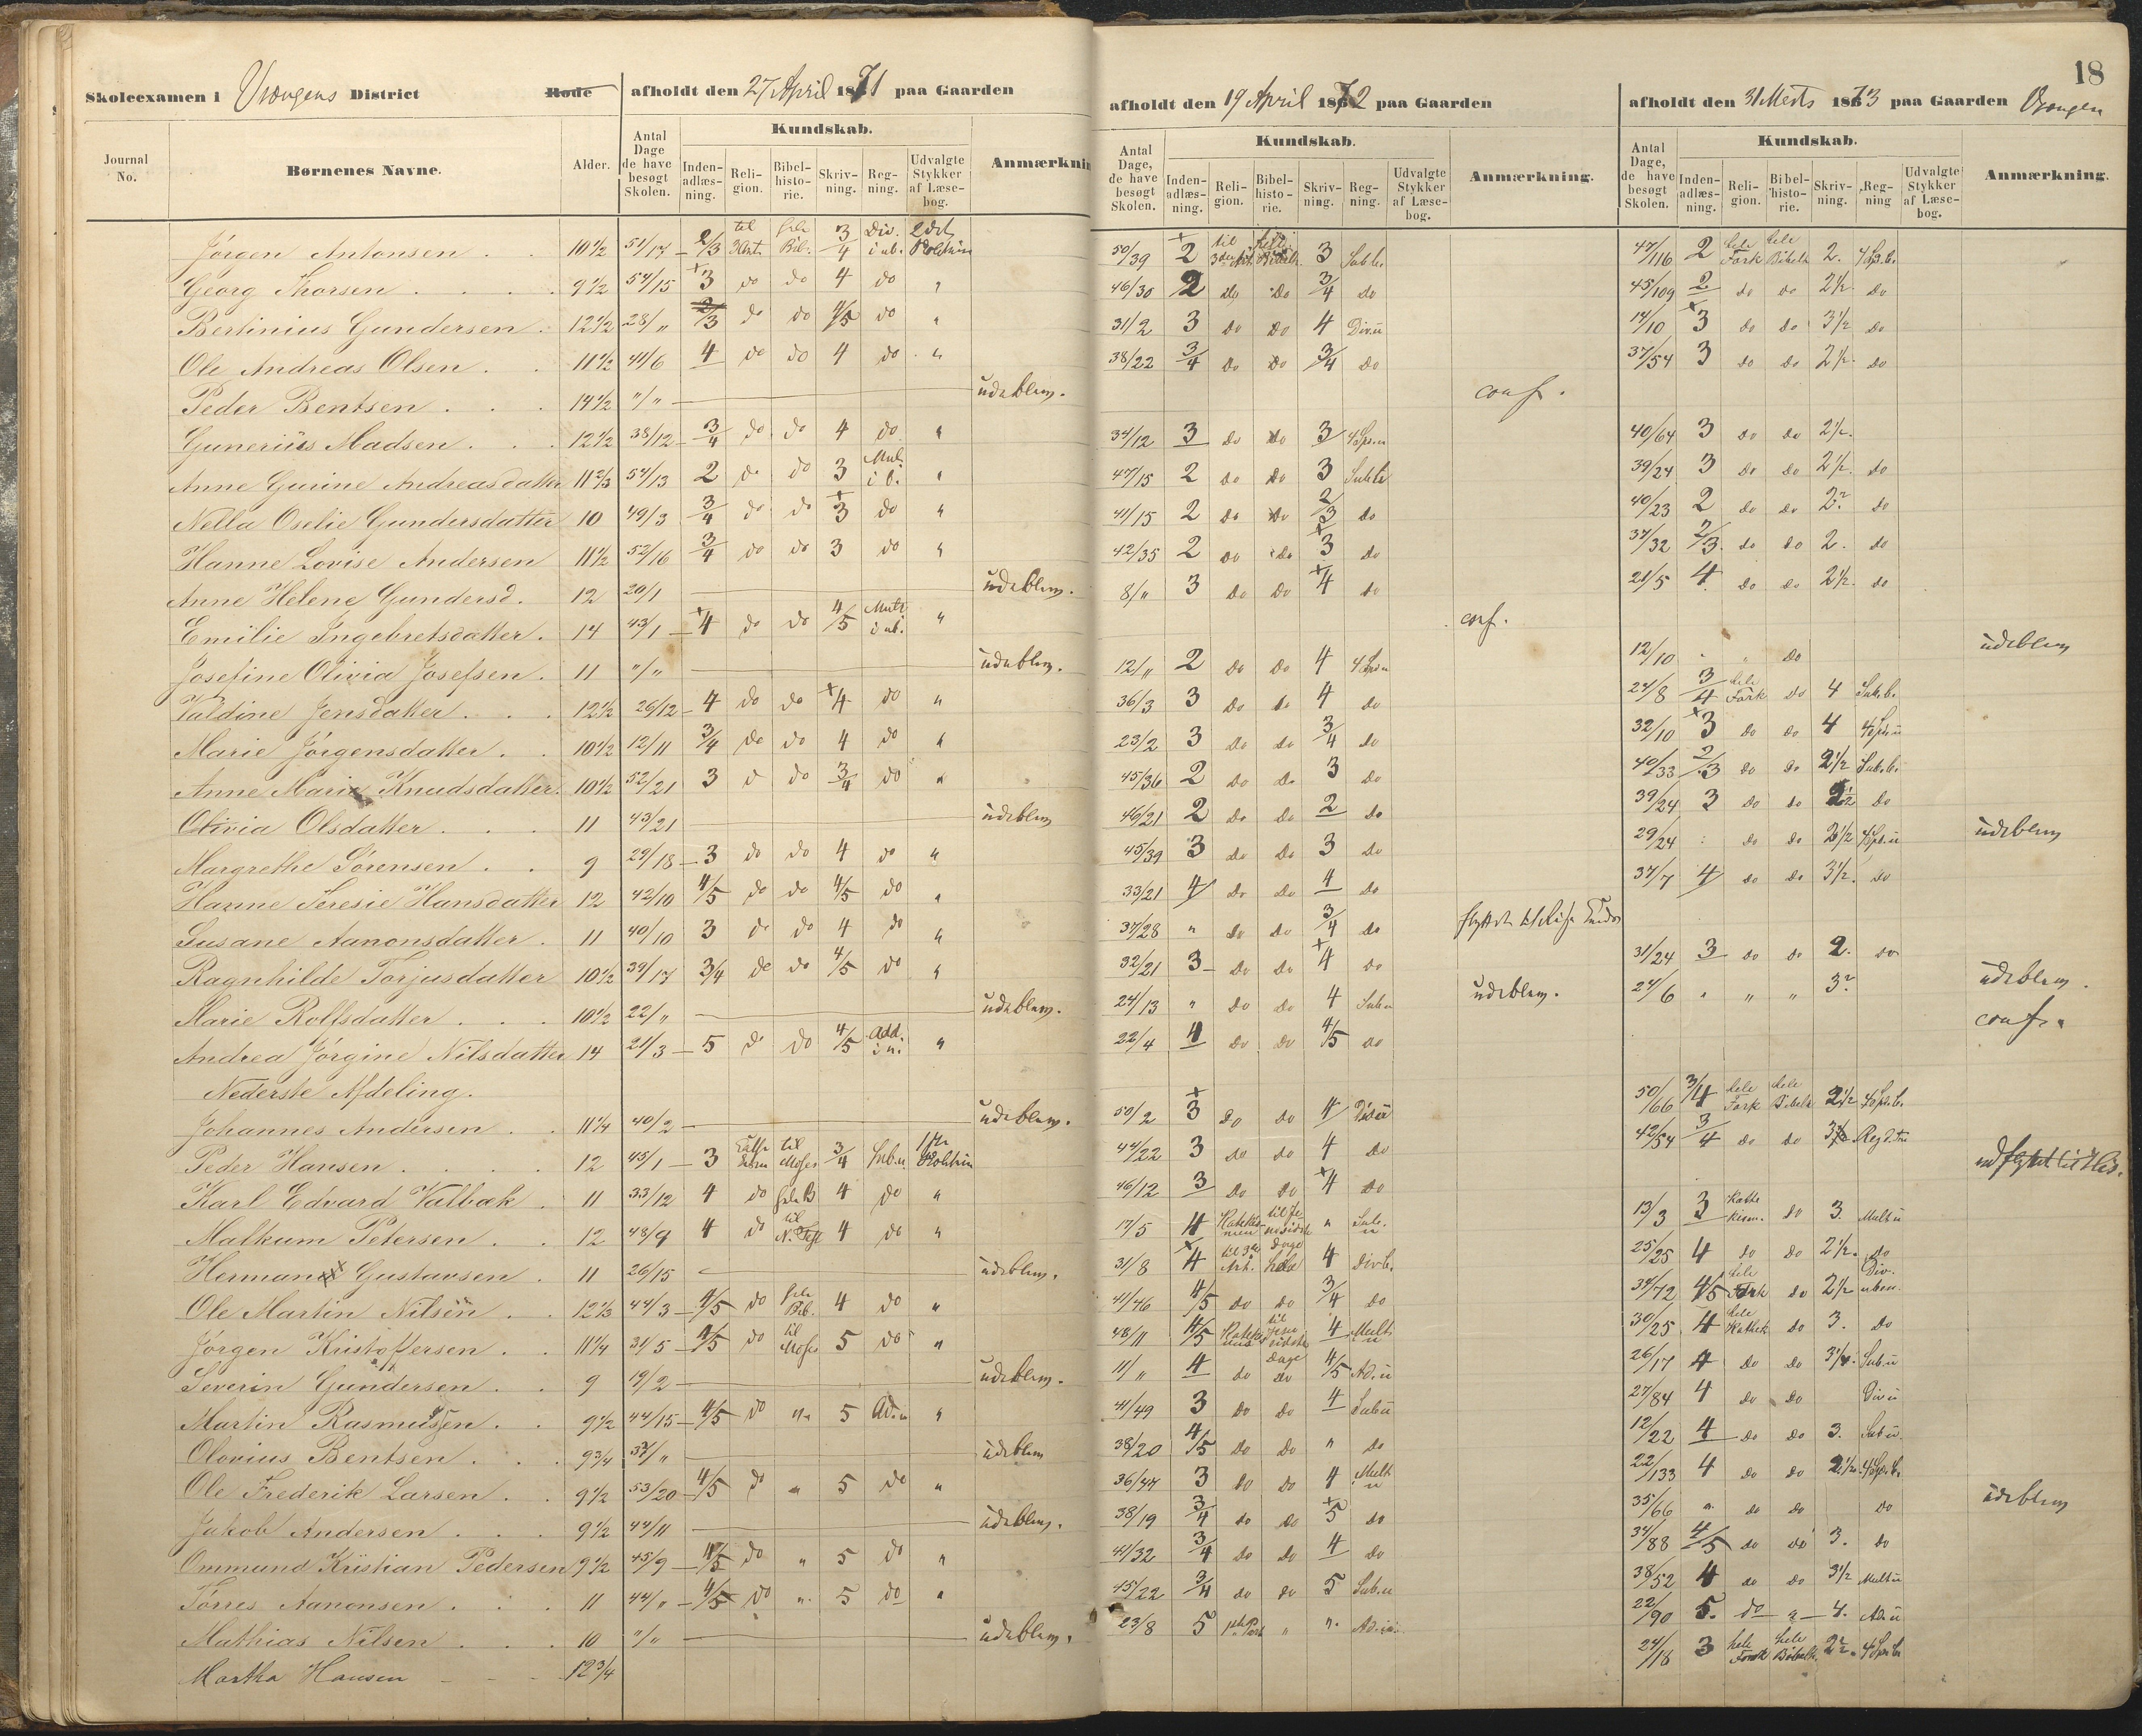 18
Skoleexamen i Vrængens District Rode afholdt den 27 April 1871 paa Gaarden
afholdt den 19 April 1872 paa Gaarden
afholdt den 31 Marts 1873 paa Gaarden Vrængen
Journal No. Børnenes Navne. Alder. Antal Dage de have besøgt Skolen. Kundskab. Inden-adlæs-ning. Reli-gion. Bibel-histo-rie. Skriv-ning. Reg-ning. Udvalgte Stykker af Læse-bog. Anmærkning
Antal Dage, de have besøgt Skolen. Kundskab. Inden-adlæs-ning. Reli-gion. Bibel-histo-rie. Skriv-ning. Reg-ning. Udvalgte Stykker af Læse-bog. Anmærkning.
Antal Dage, de have besøgt Skolen. Kundskab. Inden-adlæs-ning. Reli-gion. Bibel-histo-rie. Skriv-ning. Reg-ning Udvalgte Stykker af Læse-bog. Anmærkning.
Jørgen Antonsen . . 10 1/2 51/17 2/3 til hele Bib. 3/4 Div. 50/39 2 til 3 Sub b. 47/116 2 hele Fork hele Bibelh 2. 4 Sp.b.
Georg Thorsen . . . 9 1/2 54/15 3 do do 4 do " 46/30 2 do do 3/4 do 45/109 2 do do 2 1/2 do
Bertinius Gundersen . 12 1/2 28/" 2/3 do do 4/5 do " 31/2 3 do do 4 Div.u 14/10 3 do do 3 1/2 do
Ole Andreas Olsen . . 11 1/2 41/6 4 do do 4 do " 38/22 3/4 do do 3/4 do 37/54 3 do do 2 1/2 do
Peder Bentsen . . . 14 1/2 "/" udeblem. conf.
Gunerius Madsen . . . 12 1/2 38/12 3/4 do do 4 do " 34/12 3 do do 3 4 Sp.u 40/64 3 do do 2 1/2.
Anne Gurine Andreasdatter 11 2/3 54/13 2 do do 3 Mul. i b. " 47/15 2 do do 3 Sub b 39/24 3 do do 2 1/2. do
Nella Oselie Gundersdatter 10 49/3 3/4 do do 3 do " 41/15 2 do do 2/3 do 40/23 2 do do 2. do
Hanne Lovise Andersen 11 1/2 52/16 3/4 do do 3 do " 42/35 2 do do 3 do 37/32 2/3 do do 2. do
Anne Helene Gundersd. 12 20/1 udeblem. 8/" 3 do do 4 do 21/5 4. do do 2 1/2 do
Emilie Ingebretsdatter . 14 43/1 4 do do 4/5 Mult i ub. " conf.
Josefine Olivia Josefsen . 11 "/" udeblem. 12/" 2 do do 4 12/10 " " do udeblem
Valdine Jensdatter . . . 12 1/2 26/12 4 do do 4 do " 36/3 3 do do 4 do 24/8 3/4 hele Fork do 4 Sub.b.
Marie Jørgensdatter . . 10 1/2 12/11 3/4 do do 4 do " 23/2 3 do do 3/4 do 32/10 3 do do 4 4 Sp.u
Anne Marie Knudsdatter. 10 1/2 52/21 3 do do 3/4 do " 45/36 2 do do 3 do 40/33 2/3 do do 2 1/2 Sub.b.
Olivia Olsdatter . . . 11 43/21 udeblem 46/21 2 do do 2 do 39/24 3 do do 2 1/2 do
Margrethe Sørensen . . 9 29/18 3 do do 4 do " 45/39 3 do do 3 do 29/24 : do do 2 1/2 4 Sp.u udeblem
Hanne Seresie Hansdatter 12 42/10 4/5 do do 4/5 do " 33/21 4 do do 4 do 37/7 4 do do 3 1/2. do
Susane Aanonsdatter . 11 40/10 3 do do 4 do " 37/28 " do do 3/4 do flyttet til
Ragnhilde Torjusdatter 10 1/2 39/17 3/4 do do 4/5 do " 32/21 3 do do 4 do 31/24 3 do do 2. do
Marie Rolfsdatter . . . 10 1/2 22/" udeblem. 24/13 " do do 4 Sub.u udeblem. 24/6 " " " 3. udeblem.
Andrea Jørgine Nilsdatter 14 21/3 5 do do 4/5 Add. i u. " 22/4 4 do do 4/5 do conf.
Nederste Afdeling.
Johannes Andersen . . 11 1/4 40/2 udeblem. 50/2 3 do do 4 Div.u 50/66 3/4 hele Fork hele Bibelh 2 1/2 4 Sp.b.
Peder Hansen . . . . 12 45/1 3 til Moses 3/4 Sub.u 44/22 3 do do 4 do 42/54 3/4 do do Reg.d.tri
Karl Edvard Valbæk . 11 33/12 4 do hele B 4 do " 46/12 3 do do 4 do
Malkum Petersen . . 12 48/9 4 do til N. Test 4 do " 17/5 4 " Sub. u 13/3 3 do 3. Mult u
Herman Gustavsen . 11 26/15 udeblem. 31/8 4 4 Div b. 25/25 4 do do 2 1/2. do
Ole Martin Nilsen . . 12 1/3 44/3 4/5 do hele Bib. 4 do " 41/46 4/5 do do 3/4 do 34/72 4/5 hele Fork do 2 1/2 Div.
Jørgen Kristoffersen . . 11 1/4 31/5 4/5 do til Moses 5 do " 48/11 4/5 4 Mult u 30/25 4 hele Kathek do 3. do
Severin Gundersen . . 9 19/2 udeblem. 11/" 4 do do 4/5 Ad.u 26/17 4 do do 3 1/4. Sub.u
Martin Rasmussen . . 9 1/2 44/15 4/5 do " 5 Ad.u " 41/49 3 do do 4 Sub u 27/84 4 do do Div u
Olovius Bentsen . . . 9 3/4 37/" udeblem 38/20 4/5 do do " do 12/22 4 do do 3. Sub u.
Ole Frederik Larsen . . 9 1/2 53/20 4/5 do " 5 do " 36/44 3 do do 4 Mult u 22/133 4 do do 2 1/2. 4 Sp.b.
Jakob Andersen . . . 9 1/2 44/11 udeblem. 38/19 3/4 do do 5 do 35/66 " do do do udeblem
Ommund Kristian Pedersen 9 1/2 45/9 4/5 do " 5 do " 41/32 3/4 do do 4 do 34/88 4/5 do do 3. do
Torres Aanonsen . . . 11 44/" 4/5 do " 5 do " 45/22 3/4 do do 5 Sub.u 38/52 4 do do 3 1/2 Mult u
Mathias Nilsen . . . 10 "/" udeblem. 23/8 5 " " 22/90 5. do 4. Ad.u
Martha Hansen - - - 12 3/4 24/18 3 hele Fork hele Bibelh. 2. 4 Sp.b